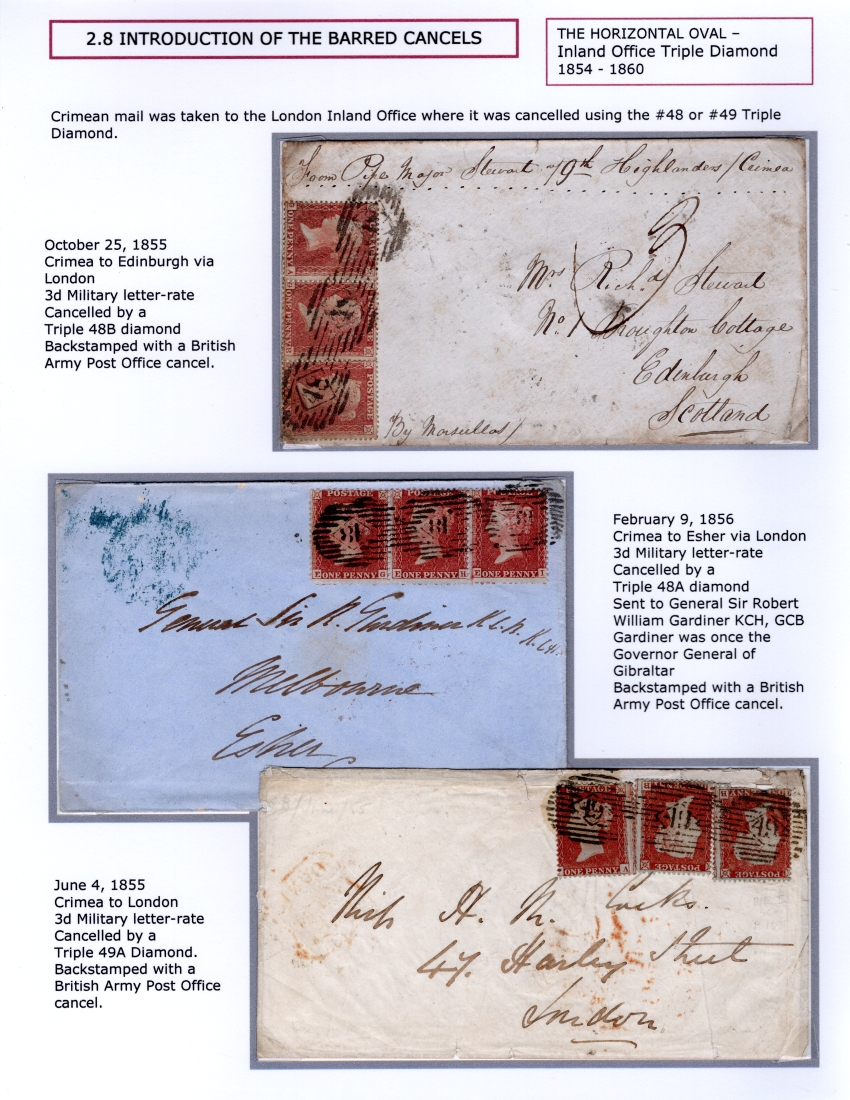 2.8 INTRODUCTION OF THE BARRED CANCELS
THE HORIZONTAL OVAL –
Inland Office Triple Diamond
1854 - 1860
Crimean mail was taken to the London Inland Office where it was cancelled using the #48 or #49 Triple
Diamond.
From Pipe Major Stewart 79th Highlanders / Crimea
October 25, 1855
Crimea to Edinburgh via
London
3d Military letter-rate
Cancelled by a
Triple 48B diamond
Backstamped with a British
Army Post Office cancel.
ONE PENNY
ONE PENNY
POSTAGE
3
Mrs Richd Stewart
No 1 Broughton Cottage
Edinburgh
Scotland
By Marseilles /
POSTAGE
ONE PENNY
ONE PENNY
ONE PENNY
General Sir R. Gardiner K.C.B.
K.C.H.
Melbourne
Esher
February 9, 1856
Crimea to Esher via London
3d Military letter-rate
Cancelled by a
Triple 48A diamond
Sent to General Sir Robert
William Gardiner KCH, GCB
Gardiner was once the
Governor General of
Gibraltar
Backstamped with a British
Army Post Office cancel.
June 4, 1855
Crimea to London
3d Military letter-rate
Cancelled by a
Triple 49A Diamond.
Backstamped with a
British Army Post Office
cancel.
49
ONE PENNY
POSTAGE
POSTAGE
Miss H. M. Cocks.
47. Harley Street
London